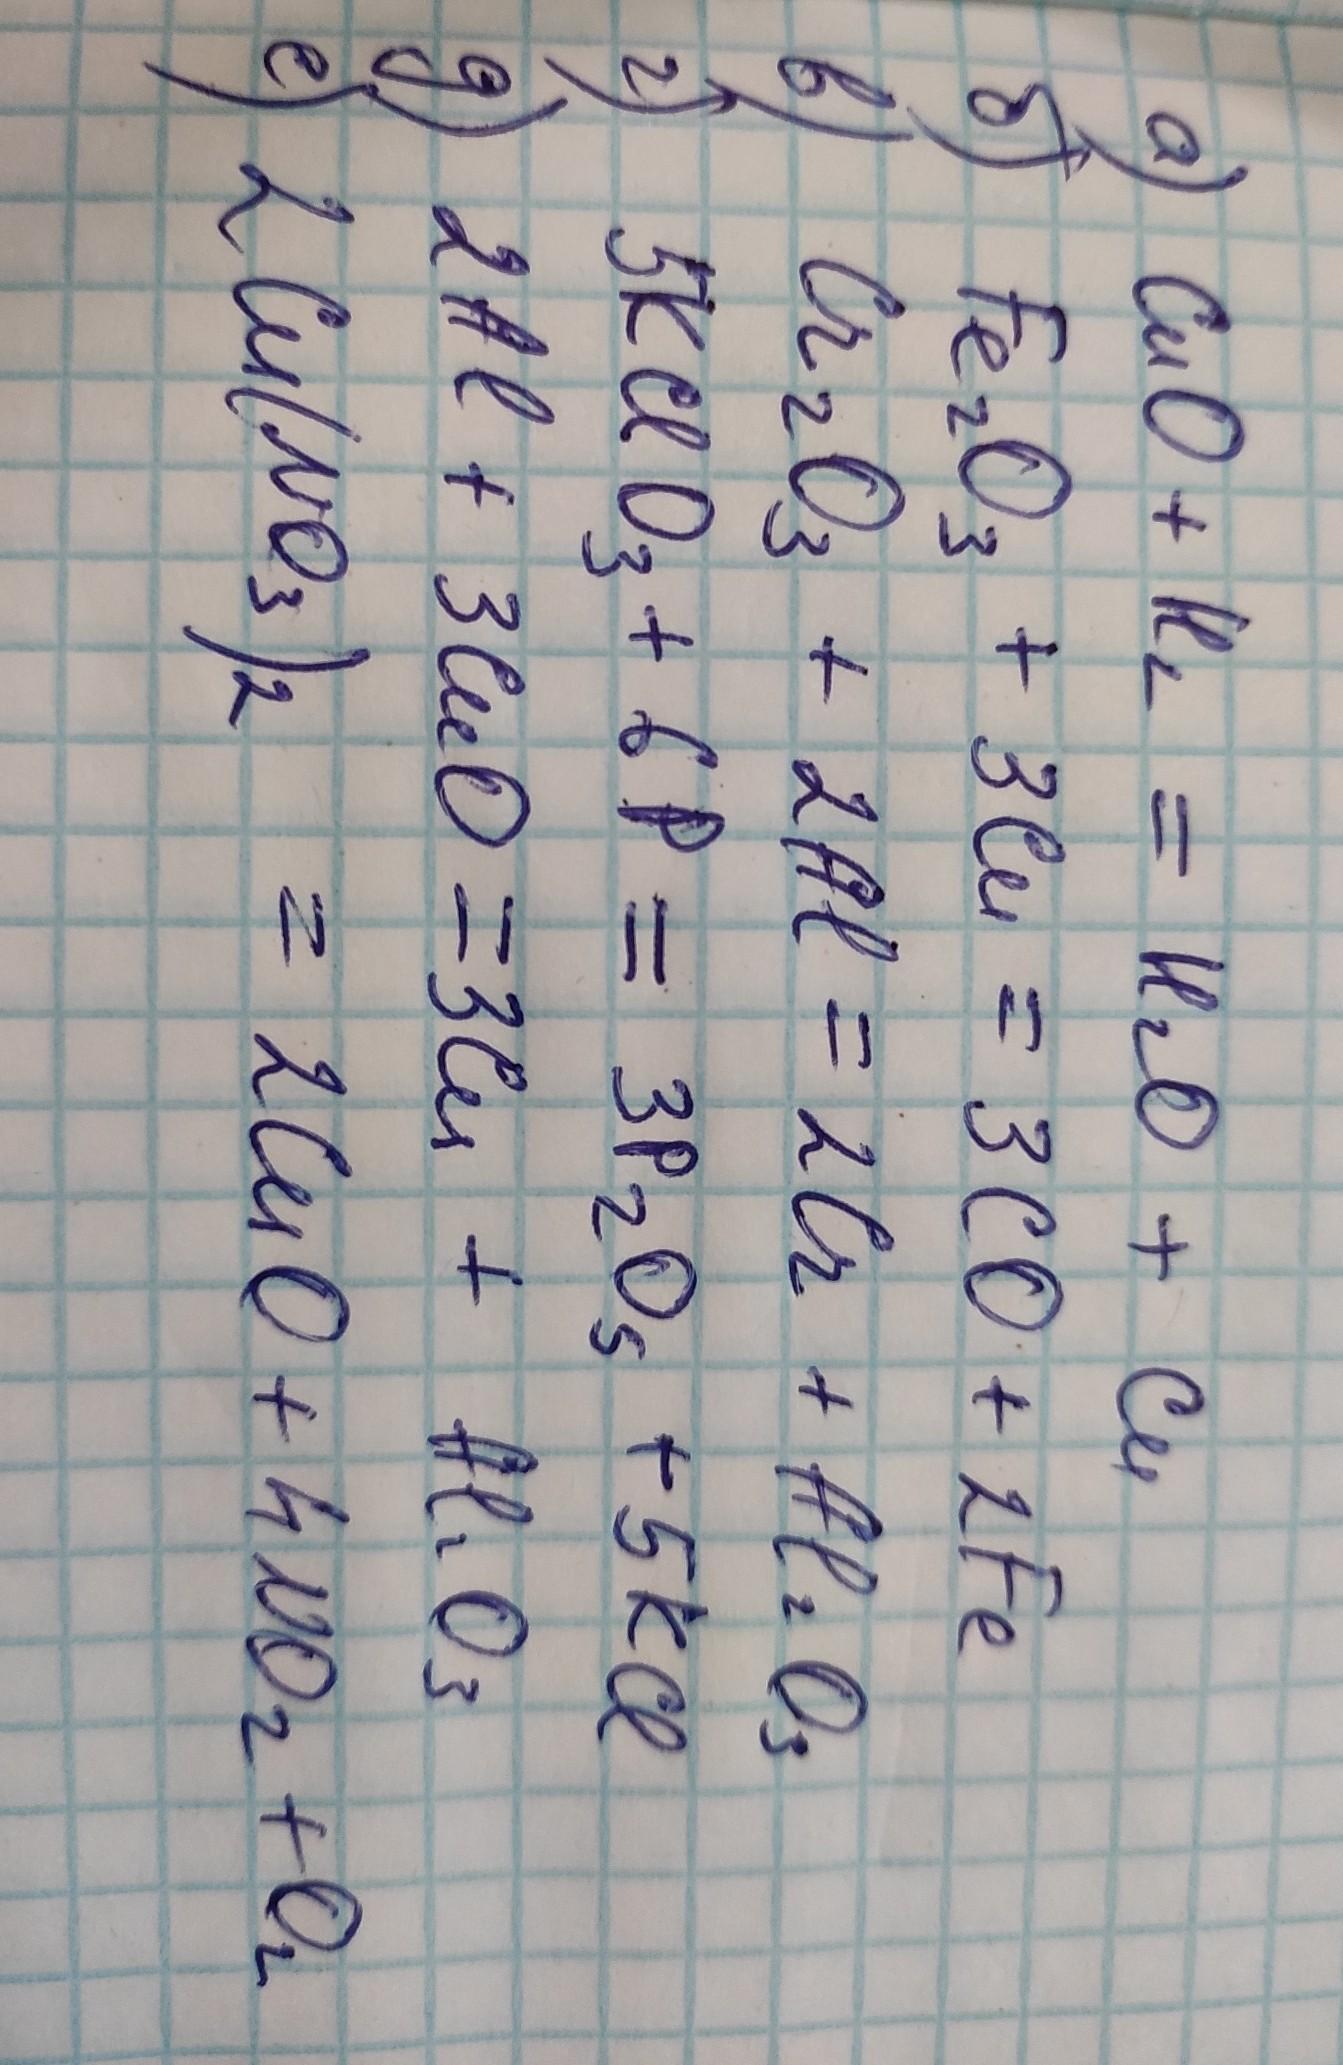 а) CuO + H₂ = H₂O + Cu
б) Fe₂O₃ + 3Cu = 3CO + 2Fe
в) Cr₂O₃ + 2Al = 2Cr + Al₂O₃
г) 5KClO₃ + 6P = 3P₂O₅ + 5KCl
д) 2Al + 3CuO = 3Cu + Al₂O₃
е) 2Cu(NO₃)₂ = 2CuO + 4NO₂ + O₂